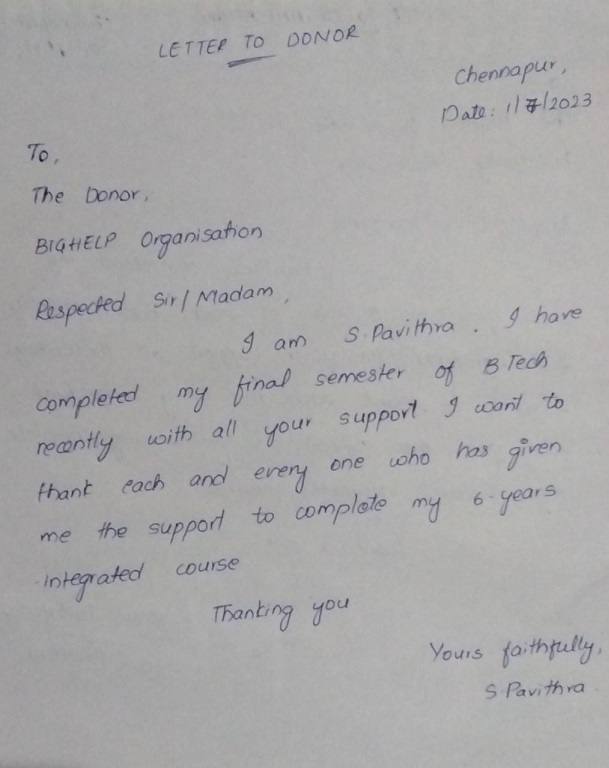 LETTER TO DONOR
Chennapur,
Date: 1/7/2023
To,
The Donor,
BIGHELP Organisation
Respected Sir/Madam,
I am S.Pavithra. I have
completed my final semester of B Tech
recently with all your support I want to
thank each and every one who has given
me the support to complete my 6-years
integrated course
Thanking you
Yours faithfully,
S.Pavithra.